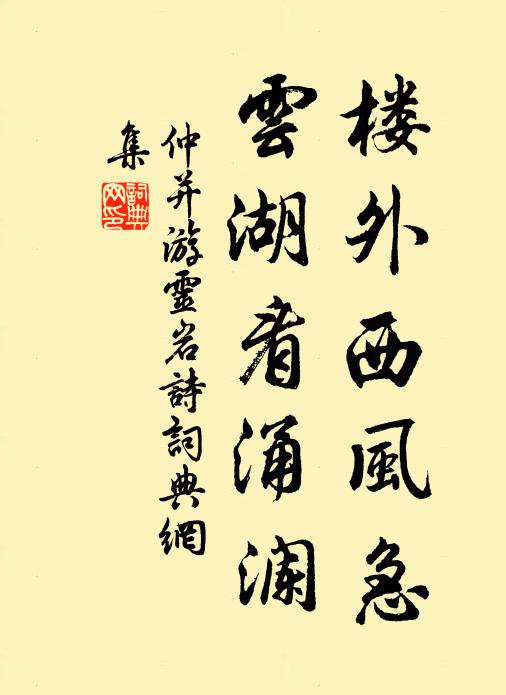 楼外西風急
雲湖看涌澜
仲并游靈岩詩詞典網
集
詞典
网印